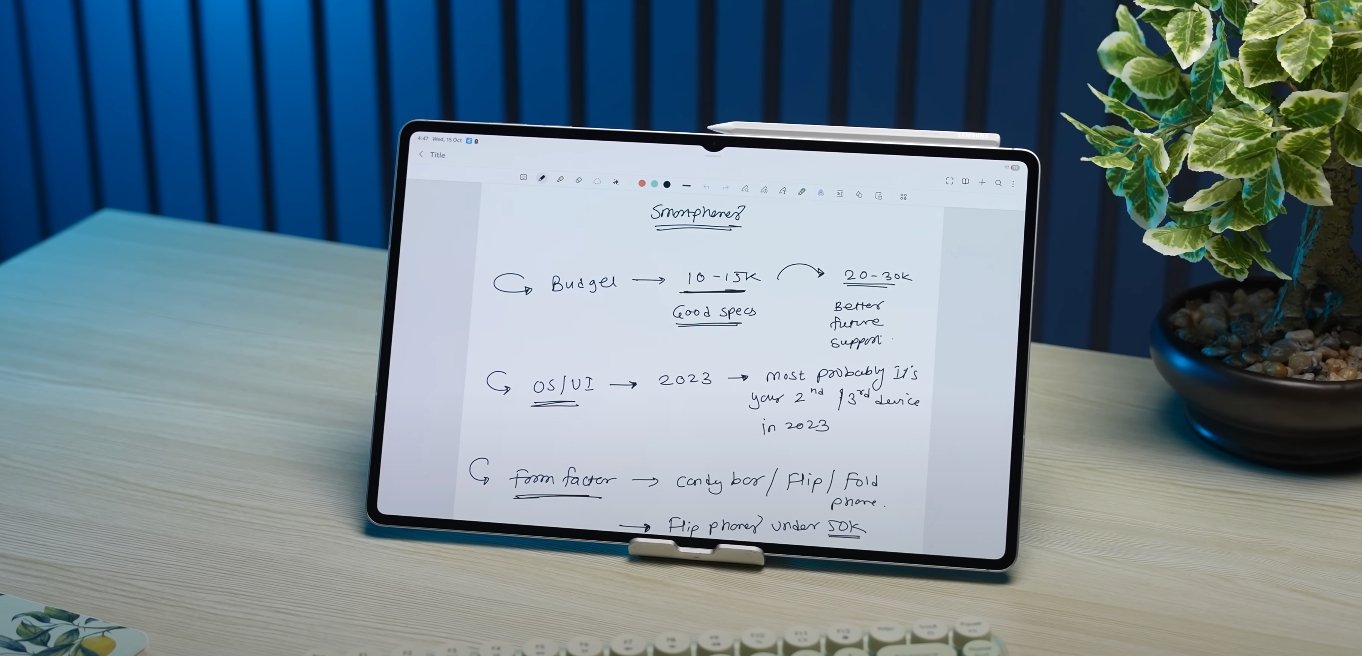 4:47 Wed, 15 Oct
Title
Smartphones
Budget → 10-15K → 20-30K
Good specs
Better
future
support.
OS/UI → 2023 → most probably It's
your 2nd /3rd device
in 2023
Form factor → candy bar/ Flip/ Fold
phone.
→ Flip phones under 50K